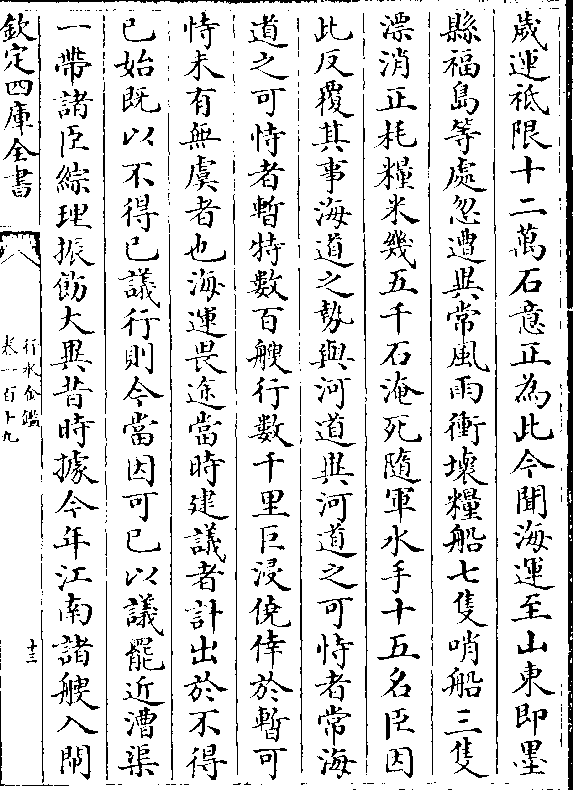 歲運祗限十二萬石意正為此今聞海運至山東即墨
縣福島等處忽遭異常風雨衝壞糧船七隻哨船三隻
漂消正耗糧米幾五千石淹死隨軍水手十五名臣因
此反覆其事海道之勢與河道異河道之可恃者常海
道之可恃者暫特數百艘行數千里巨浸僥倖於暫可
恃未有無虞者也海運畏途當時建議者計出於不得
已始既以不得已議行則今當因可已以議罷近漕渠
一帶諸臣綜理振飭大異昔時據今年江南諸艘入閘
欽定四庫全書
行水金鑑
卷一百十九
十三